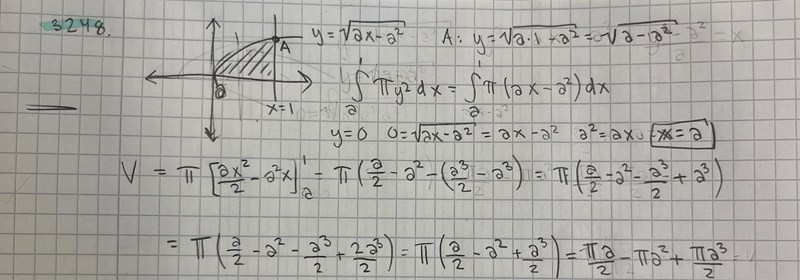 3248.
y = √(ax-a²)   A: y = √(a·1-a²) = √(a-a²)
A
a
x=1
∫ₐ¹ πy²dx = ∫ₐ¹ π(ax-a²)dx
y=0   0=√(ax-a²) = ax-a²   a²=ax   x=a
V = π[ax²/2 - a²x]ₐ¹ = π(a/2 - a² - (a³/2 - a³)) = π(a/2 - a² - a³/2 + a³)
= π(a/2 - a² - a³/2 + 2a³/2) = π(a/2 - a² + a³/2) = πa/2 - πa² + πa³/2